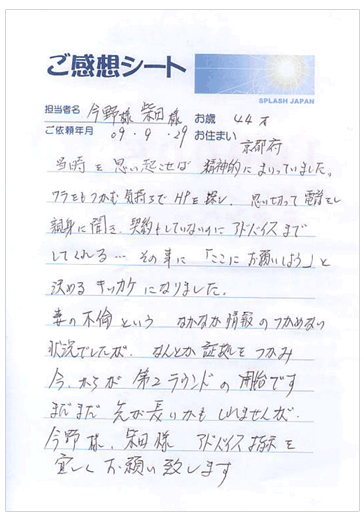 ご感想シート
SPLASH JAPAN
担当者名 今野様 柴田様 お歳 44才
ご依頼年月 09.9.29 お住まい 京都府
当時を思い起こせば 精神的にまいっていました。
ワラをもつかむ気持ちでHPを探し、思い切って電話をし
親身に聞き、契約もしていないのにアドバイスまで
してくれる… その事に「ここにお願いしよう」と
決めるキッカケになりました。
妻の不倫という なかなか情報のつかめない
状況でしたが、なんとか証拠をつかみ
今、からが第2ラウンドの開始です
まだまだ先が長いかもしれませんが、
今野様、柴田様 アドバイス指示を
宜しくお願い致します